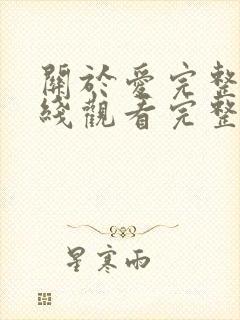 關於愛完整
綫觀看完整
星寒雨